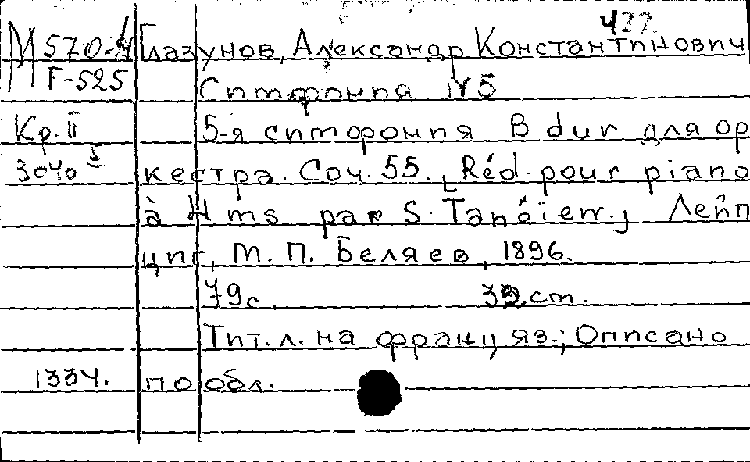 477.
М570-4 Глазунов, Александр Константинович
Г-525 Симфония №5
Кр. II 5-я симфония B dur для ор
3040 кестра. Соч. 55. Réd pour piano
à 4 ms par S. Tanéiew, Лейп
циг, М. П. Беляев, 1896.
79с. 35.cm.
Тит. л. на франц яз.; Описано
1334. по обл.